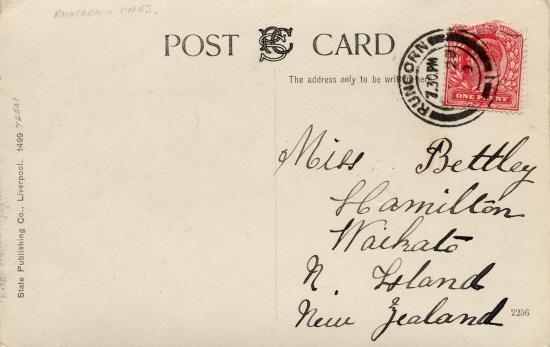 RUNCORN - CHES.
POST CARD
The address only to be written here
RUNCORN
7.30PM
ONE PENNY
Miss Bettley
Hamilton
Waikato
N. Island
New Zealand
2256
State Publishing Co., Liverpool. 1499